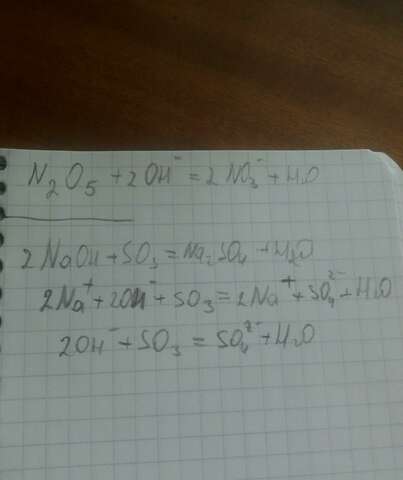 N₂O₅ + 2OH⁻ = 2NO₃⁻ + H₂O
2NaOH + SO₃ = Na₂SO₄ + H₂O
2Na⁺ + 2OH⁻ + SO₃ = 2Na⁺ + SO₄²⁻ + H₂O
2OH⁻ + SO₃ = SO₄²⁻ + H₂O